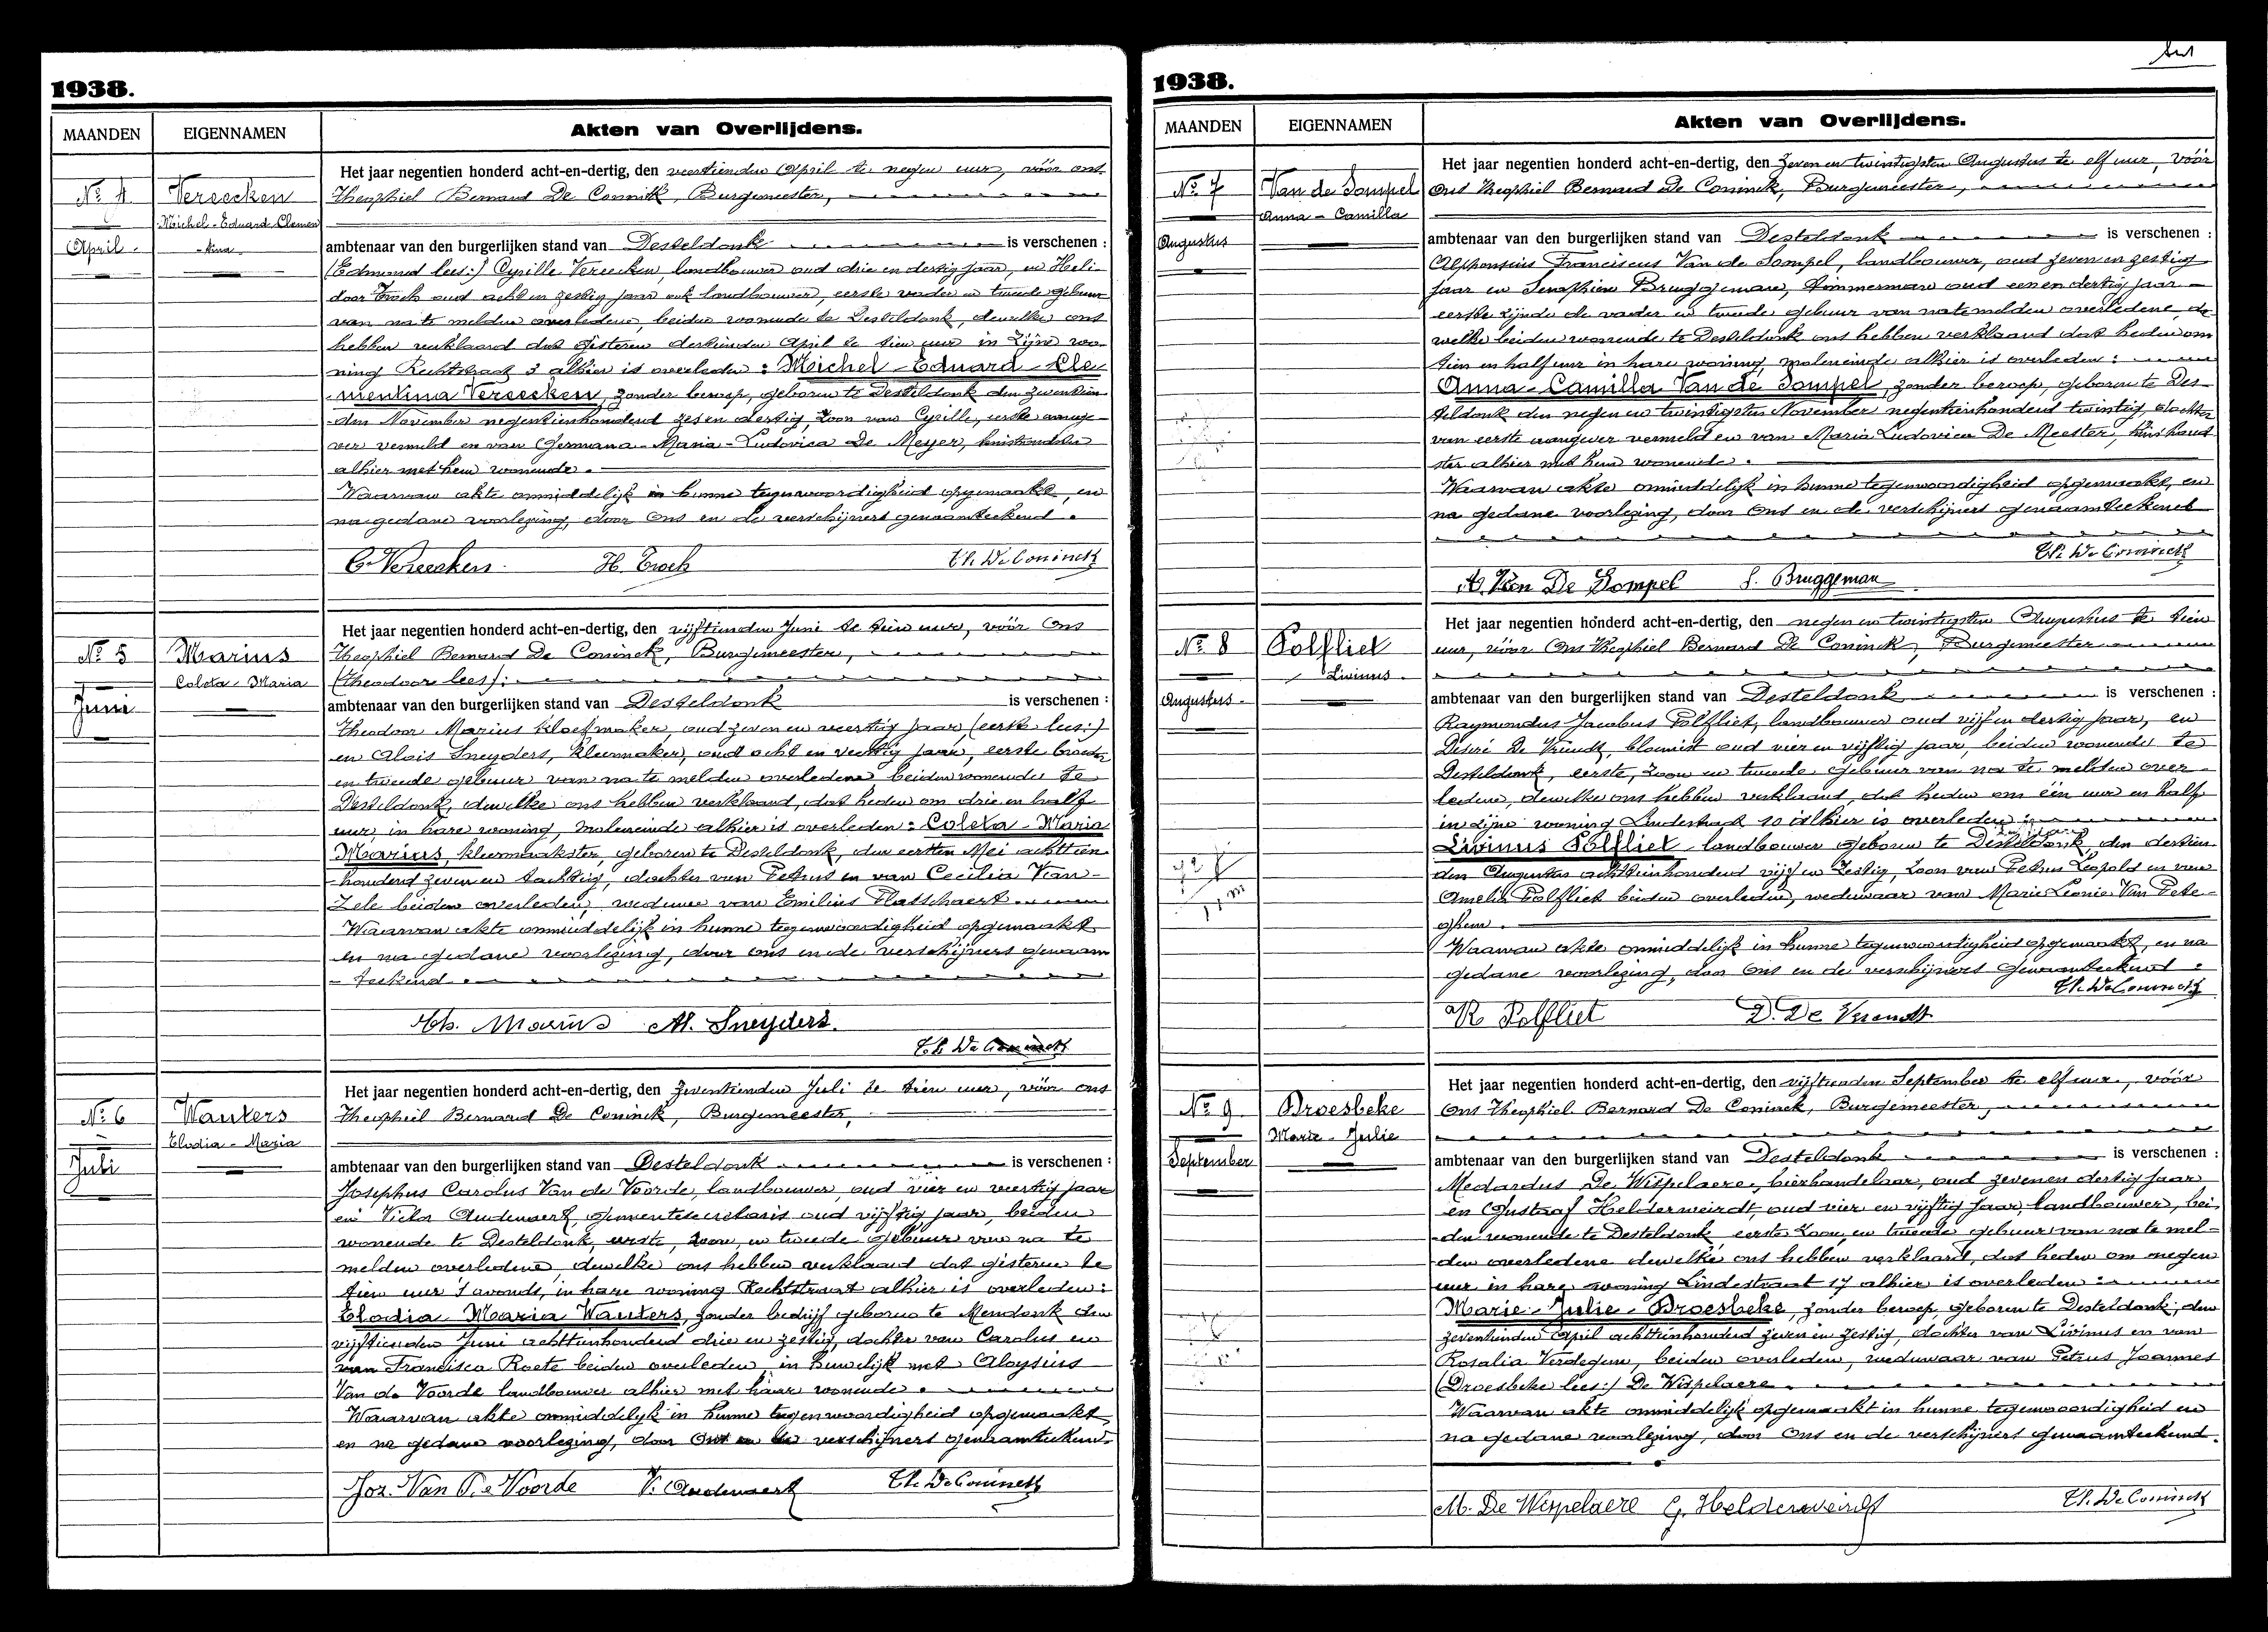 1938.
MAANDEN
EIGENNAMEN
Akten van Overlijdens.
No. 4
April.
Vereecken
Michel-Eduard-Clemen
-tina
Het jaar negentien honderd acht-en-dertig, den veertienden April te negen uur, vóór ons
Theophiel Bernard De Coninck, Burgemeester,
ambtenaar van den burgerlijken stand van Desteldonk is verschenen :
(Edmond lees:) Cyrille Vereecken, landbouwer oud drie en dertig jaar, en Heli-
door Troch oud acht en zestig jaar ook landbouwer, eerste vader en tweede gebuur
van na te melden overledene, beiden wonende te Desteldonk, dewelke ons
hebben verklaard dat gisteren dertienden April te tien uur in zijne wo-
ning Rechtstraat 3 alhier is overleden : Michel-Eduard-Cle
mentina Vereecken, zonder beroep, geboren te Desteldonk den zeventien
den November negentienhonderd zes en dertig, zoon van Cyrille, eerste aange-
ver vermeld en van Germana-Maria-Ludovica De Meyer, huishoudster
alhier met hem wonende.
Waarvan akte onmiddelijk in hunne tegenwoordigheid opgemaakt, en
na gedane voorlezing, door Ons en de verschijners genaamteekend.
C. Vereecken H. Troch Th. De Coninck
No. 5
Juni
Marius
Coleta-Maria
Het jaar negentien honderd acht-en-dertig, den vijftienden Juni te tien uur, vóór Ons
Theophiel Bernard De Coninck, Burgemeester,
(Theodoor lees):
ambtenaar van den burgerlijken stand van Desteldonk is verschenen :
Theodoor Marius kloefmaker, oud zeven en veertig jaar (eerste lees:)
en Alois Sneyders, kleermaker, oud acht en veertig jaar, eerste broeder
en tweede gebuur van na te melden overledene beiden wonende te
Desteldonk, dewelke ons hebben verklaard, dat heden om drie en half
uur in hare woning, moleneinde alhier is overleden: Coleta-Maria
Marius, kleermaakster, geboren te Desteldonk, den eersten Mei achttien
honderd zeven en tachtig, dochter van Petrus en van Cecilia Van-
Zele beiden overleden, weduwe van Emilius Platschaert.
Waarvan akte onmiddelijk in hunne tegenwoordigheid opgemaakt
en na gedane voorlezing, door ons en de verschijners genaam
-teekend.
Th. Marius Al. Sneyders.
Th. De Coninck
No. 6
Juli
Wauters
Elodia-Maria
Het jaar negentien honderd acht-en-dertig, den zeventienden Juli te tien uur, vóór ons
Theophiel Bernard De Coninck, Burgemeester,
ambtenaar van den burgerlijken stand van Desteldonk is verschenen :
Josephus Carolus Van de Voorde, landbouwer, oud vier en veertig jaar
en Victor Audenaert, gemeentesecretaris oud vijftig jaar, beiden
wonende te Desteldonk, eerste, zoon, en tweede gebuur van na te
melden overledene, dewelke ons hebben verklaard dat gisteren te
tien uur 's avonds, in hare woning Rechtstraat alhier is overleden:
Elodia Maria Wauters, zonder bedrijf geboren te Mendonk den
vijftienden Juni achttienhonderd drie en zestig, dochter van Carolus en
van Francisca Roete beiden overleden, in huwelijk met Aloysius
Van de Voorde landbouwer alhier met haar wonende.
Waarvan akte onmiddelijk in hunne tegenwoordigheid opgemaakt,
en na gedane voorlezing, door Ons en de verschijners genaamteekend.
Joz. Van De Voorde V. Audenaert Th. De Coninck
1938.
MAANDEN
EIGENNAMEN
Akten van Overlijdens.
No. 7
Augustus
Van de Sompel
Anna-Camilla
Het jaar negentien honderd acht-en-dertig, den zeven en twintigsten Augustus te elf uur, vóór
Ons Theophiel Bernard De Coninck, Burgemeester,
ambtenaar van den burgerlijken stand van Desteldonk is verschenen :
Alphonsius Franciscus Van de Sompel, landbouwer, oud zeven en zestig
jaar en Seraphien Bruggeman, timmerman oud een en dertig jaar-
eerste zijnde de vader en tweede gebuur van na te melden overledene, de
welke beiden wonende te Desteldonk ons hebben verklaard dat heden om
tien en half uur in hare woning, moleneinde alhier is overleden :
Anna-Camilla Van de Sompel, zonder beroep, geboren te Des-
teldonk den negen en twintigsten November negentienhonderd twintig, dochter
van eerste aangever vermeld en van Maria Ludovica De Meester, huishoud
ster alhier met hem wonende.
Waarvan akte onmiddelijk in hunne tegenwoordigheid opgemaakt, en
na gedane voorlezing, door Ons en de verschijners genaamteekend
Th. De Coninck
A. Van De Sompel S. Bruggeman
No. 8
Augustus-
Polfliet
Livinus.
Het jaar negentien honderd acht-en-dertig, den negen en twintigsten Augustus te tien
uur, vóór Ons Theophiel Bernard De Coninck, Burgemeester
ambtenaar van den burgerlijken stand van Desteldonk is verschenen :
Raymondus Jacobus Polfliet, landbouwer oud vijf en dertig jaar, en
Désiré De Vriendt, bloemist oud vier en vijftig jaar, beiden wonende te
Desteldonk, eerste, zoon en tweede gebuur van na te melden over-
ledene, dewelke ons hebben verklaard, dat heden om één uur en half
in zijne woning Lindestraat 10 alhier is overleden :
Livinus Polfliet landbouwer geboren te Desteldonk, den dertien
den Augustus achttienhonderd vijf en zestig, zoon van Petrus Leopold en van
Amelia Polfliet beiden overleden, weduwaar van Marie Leonie Van Pete-
ghem.
Waarvan akte onmiddelijk in hunne tegenwoordigheid opgemaakt, en na
gedane voorlezing, door Ons en de verschijners genaamteekend.
Th. De Coninck
R Polfliet D. De Vriendt
No. 9
September
Broesbeke
Marie-Julie
Het jaar negentien honderd acht-en-dertig, den vijftienden September te elf uur, vóór
Ons Theophiel Bernard De Coninck, Burgemeester,
ambtenaar van den burgerlijken stand van Desteldonk is verschenen :
Medardus De Wispelaere, bierhandelaar, oud zeven en dertig jaar
en Gustaaf Helderweirdt, oud vier en vijftig jaar, landbouwer, bei-
den wonende te Desteldonk eerste zoon, en tweede gebuur van na te mel-
den overledene dewelke ons hebben verklaard, dat heden om negen
uur in hare woning Lindestraat 17 alhier is overleden :
Marie-Julie-Broesbeke, zonder beroep, geboren te Desteldonk, den
zeventienden April achttienhonderd zeven en zestig, dochter van Livinus en van
Rosalia Verdegem, beiden overleden, weduwaar van Petrus Joannes
(Broesbeke lees:) De Wispelaere.
Waarvan akte onmiddelijk opgemaakt in hunne tegenwoordigheid en
na gedane voorlezing, door Ons en de verschijners genaamteekend.
M. De Wispelaere G. Helderweirdt Th. De Coninck